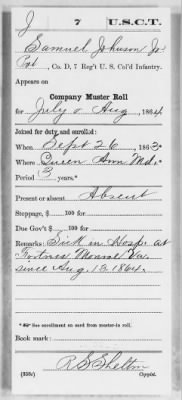 J 7 U.S.C.T.
Samuel Johnson Jr
Pvt, Co. D, 7 Reg't U. S. Col'd Infantry.
Appears on
Company Muster Roll
for July & Aug, 1864
Joined for duty, and enrolled:
When Sept 26, 1863
Where Queen Ann Md.
Period 3 years.*
Present or absent Absent
Stoppage, $ 100 for
Due Gov't $ 100 for
Remarks: Sick in Hosp. at
Fortress Monroe Va.
since Aug. 13. 1864.
* See enrollment on card from muster-in roll.
Book mark:
R S Shelton
Copyist.